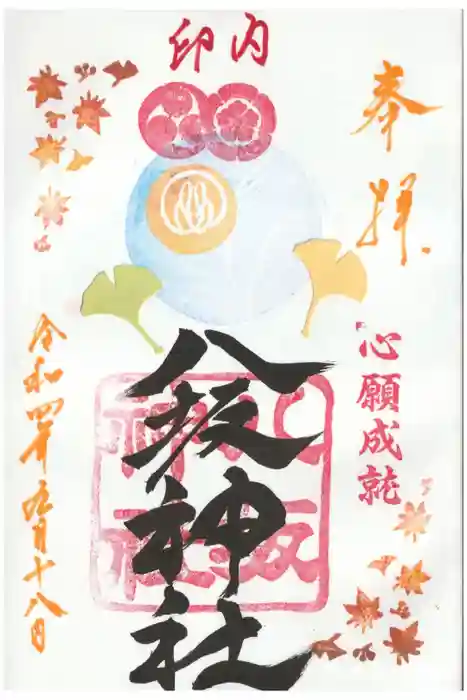 印内
奉拝
心願成就
八坂神社
八坂神社
令和四年九月十八日